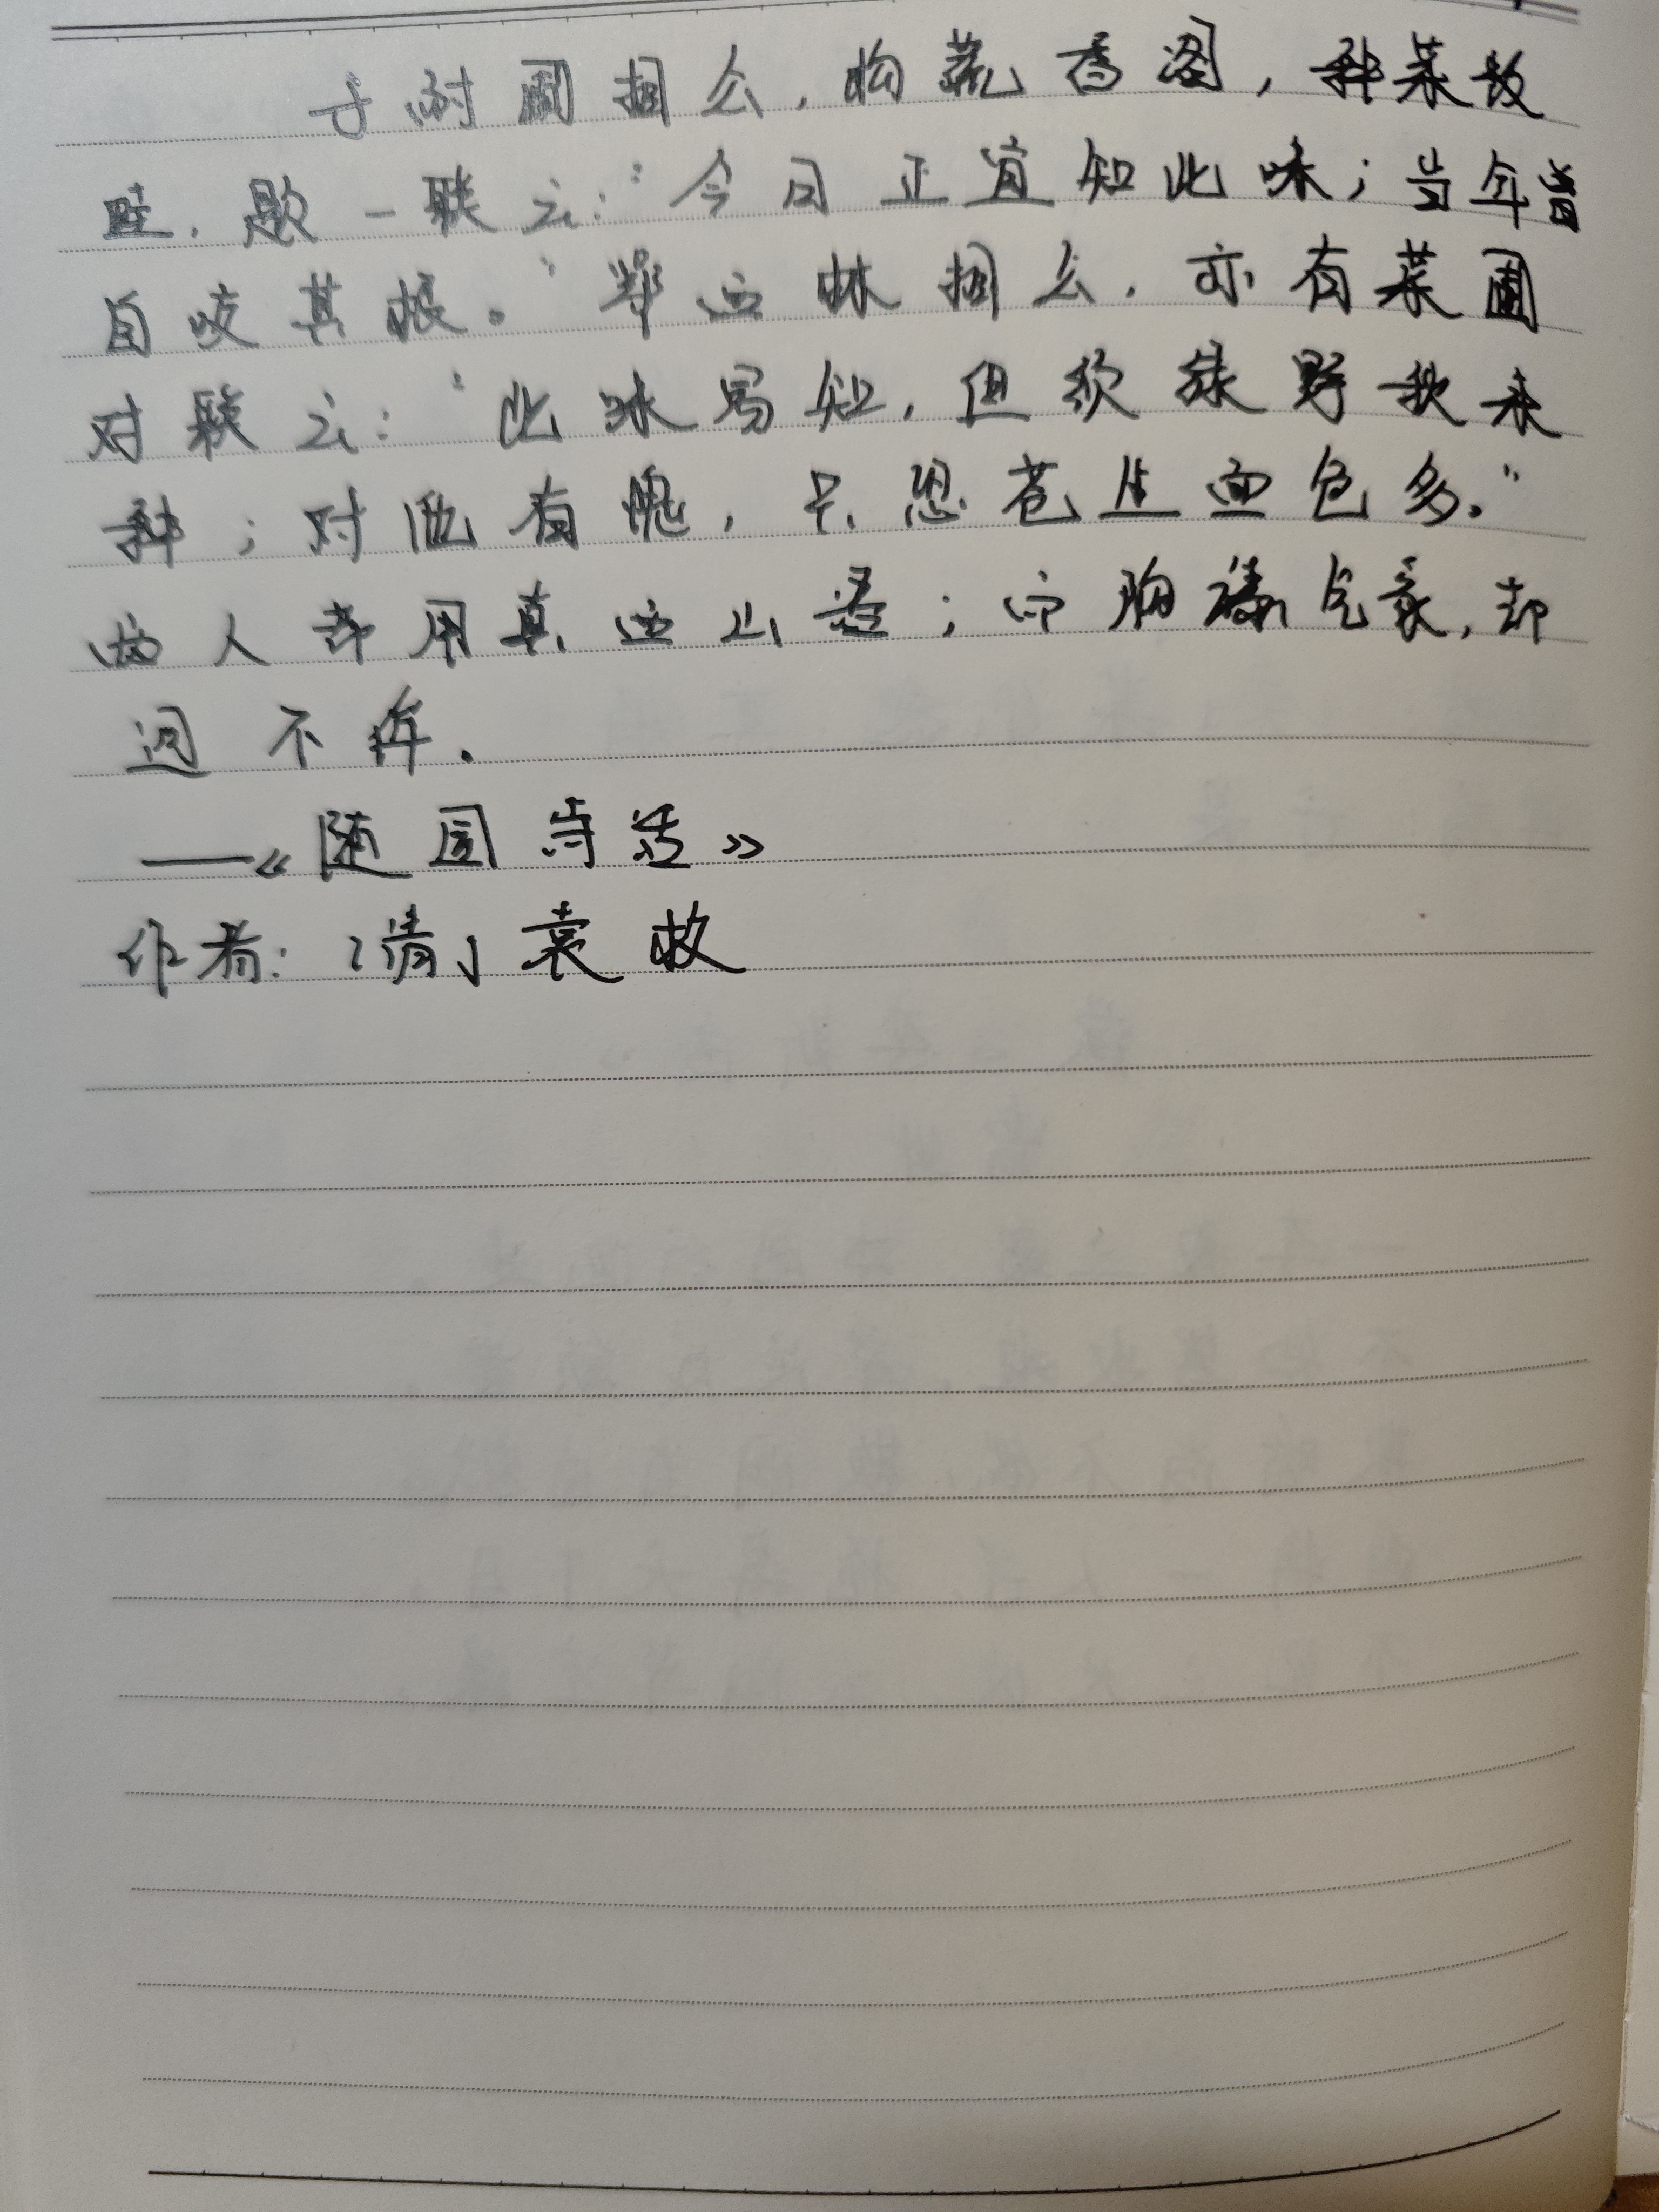 于耐圃相公，构蔬香阁，种菜数
畦，题一联云：“今日正宜知此味；当年曾
自咬其根。”鄂西林相公，亦有菜圃
对联云：“此味易知，但须绿野秋来
种；对他有愧，只恐苍生面色多。”
两人都用真西山语；而胸襟气象，却
迥不侔。
——《随园诗话》
作者：「清」袁枚